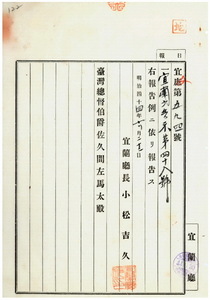 報
宜庶第五九四號
一宜蘭廳告示第四十八號
右報告例ニ依リ報告ス
明治四十四年
宜蘭廳長 小松吉久
臺灣總督伯爵佐久間左馬太殿
宜蘭廳